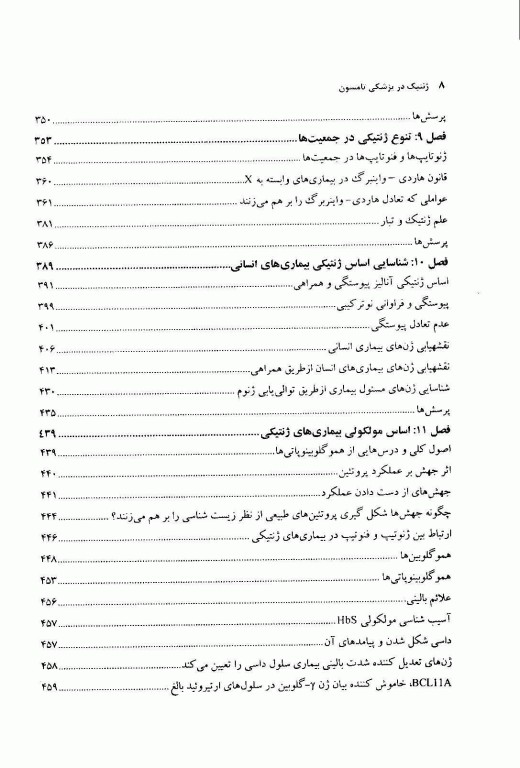 ۸ ژنتیک در پزشکی تامسون
پرسش‌ها ........ ۳۵۰
فصل ۹: تنوع ژنتیکی در جمعیت‌ها ........ ۳۵۳
ژنوتایپ‌ها و فنوتایپ‌ها در جمعیت‌ها ........ ۳۵۴
قانون هاردی – واینبرگ در بیماری‌های وابسته به X ........ ۳۶۰
عواملی که تعادل هاردی- واینبرگ را بر هم می‌زنند ........ ۳۶۱
علم ژنتیک و تبار ........ ۳۸۱
پرسش‌ها ........ ۳۸۶
فصل ۱۰: شناسایی اساس ژنتیکی بیماری‌های انسانی ........ ۳۸۹
اساس ژنتیکی آنالیز پیوستگی و همراهی ........ ۳۹۱
پیوستگی و فراوانی نوترکیبی ........ ۳۹۹
عدم تعادل پیوستگی ........ ۴۰۱
نقشهیابی ژن‌های بیماری انسانی ........ ۴۰۶
نقشهیابی ژن‌های بیماری‌های انسان ازطریق همراهی ........ ۴۱۳
شناسایی ژن‌های مسئول بیماری ازطریق توالی‌یابی ژنوم ........ ۴۳۰
پرسش‌ها ........ ۴۳۵
فصل ۱۱: اساس مولکولی بیماری‌های ژنتیکی ........ ۴۳۹
اصول کلی و درس‌هایی از هموگلوبینوپاتی‌ها ........ ۴۳۹
اثر جهش بر عملکرد پروتئین ........ ۴۴۰
جهش‌های از دست دادن عملکرد ........ ۴۴۱
چگونه جهش‌ها شکل گیری پروتئین‌های طبیعی از نظر زیست شناسی را بر هم می‌زنند؟ ........ ۴۴۴
ارتباط بین ژنوتیپ و فنوتیپ در بیماری‌های ژنتیکی ........ ۴۴۶
هموگلوبین‌ها ........ ۴۴۸
هموگلوبینوپاتی‌ها ........ ۴۵۳
علائم بالینی ........ ۴۵۶
آسیب شناسی مولکولی HbS ........ ۴۵۷
داسی شکل شدن و پیامدهای آن ........ ۴۵۷
ژن‌های تعدیل کننده شدت بالینی بیماری سلول داسی را تعیین می‌کند ........ ۴۵۸
BCL11A، خاموش کننده بیان ژن γ-گلوبین در سلول‌های اریتروئید بالغ ........ ۴۵۹